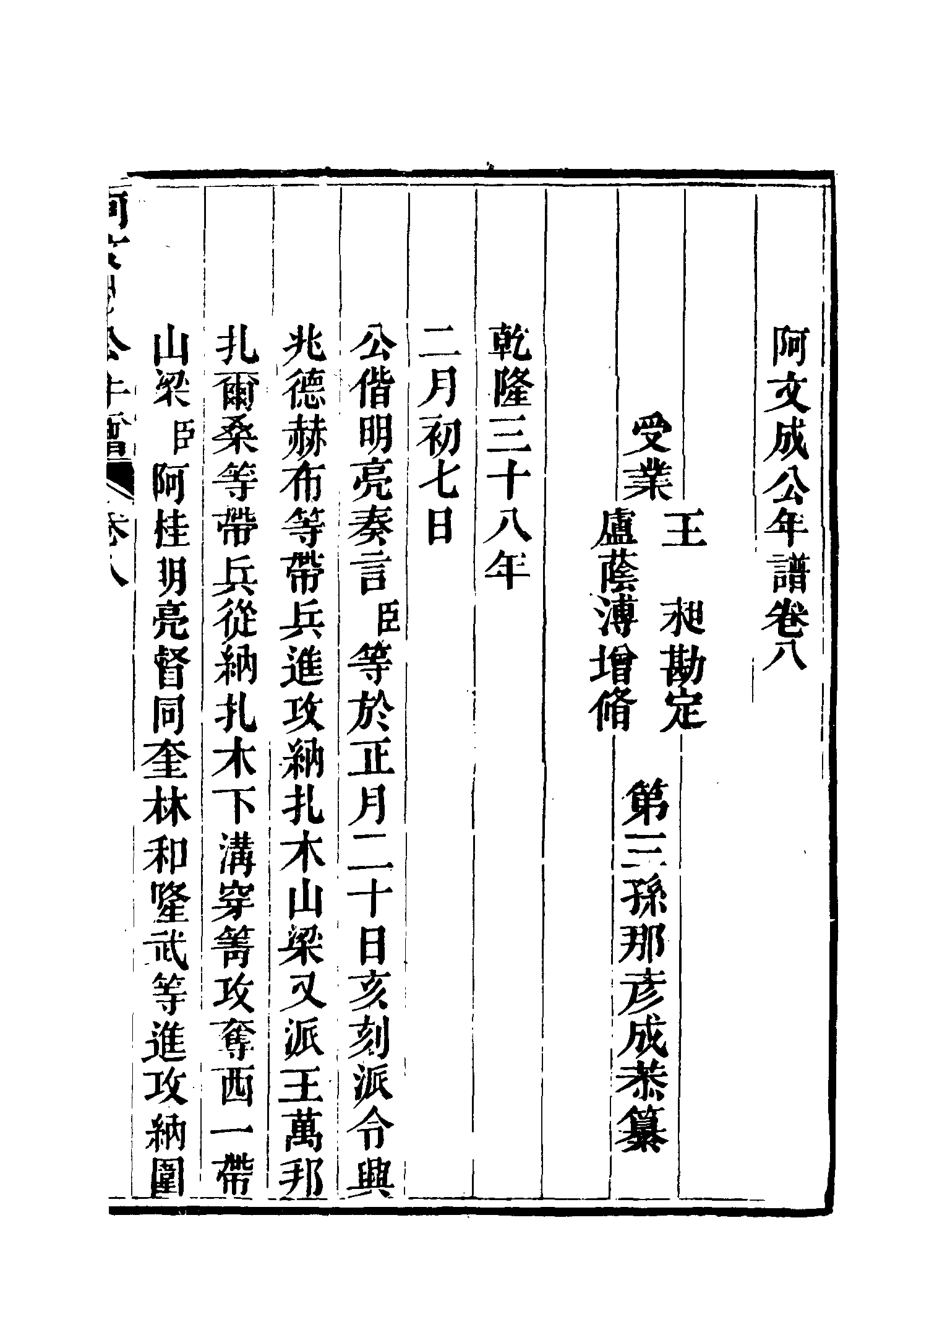 阿文成公年譜卷八
受業
王 昶勘定
盧蔭溥增脩
第三孫那彦成恭纂
乾隆三十八年
二月初七日
公偕明亮奏言臣等於正月二十日亥刻派令興
兆德赫布等帶兵進攻納扎木山梁又派王萬邦
扎爾桑等帶兵從納扎木下溝穿箐攻奪西一帶
山梁臣阿桂明亮督同奎林和隆武等進攻納圍
阿文成公年譜 卷八